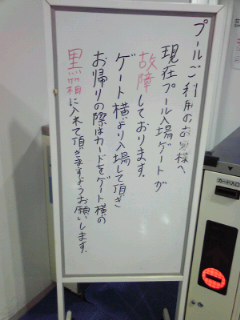 プールご利用のお客様へ
現在プール入場ゲートが
故障しております。
ゲート横より入場して頂き
お帰りの際はカードをゲート横の
黒い箱に入れて頂きますようお願いします。